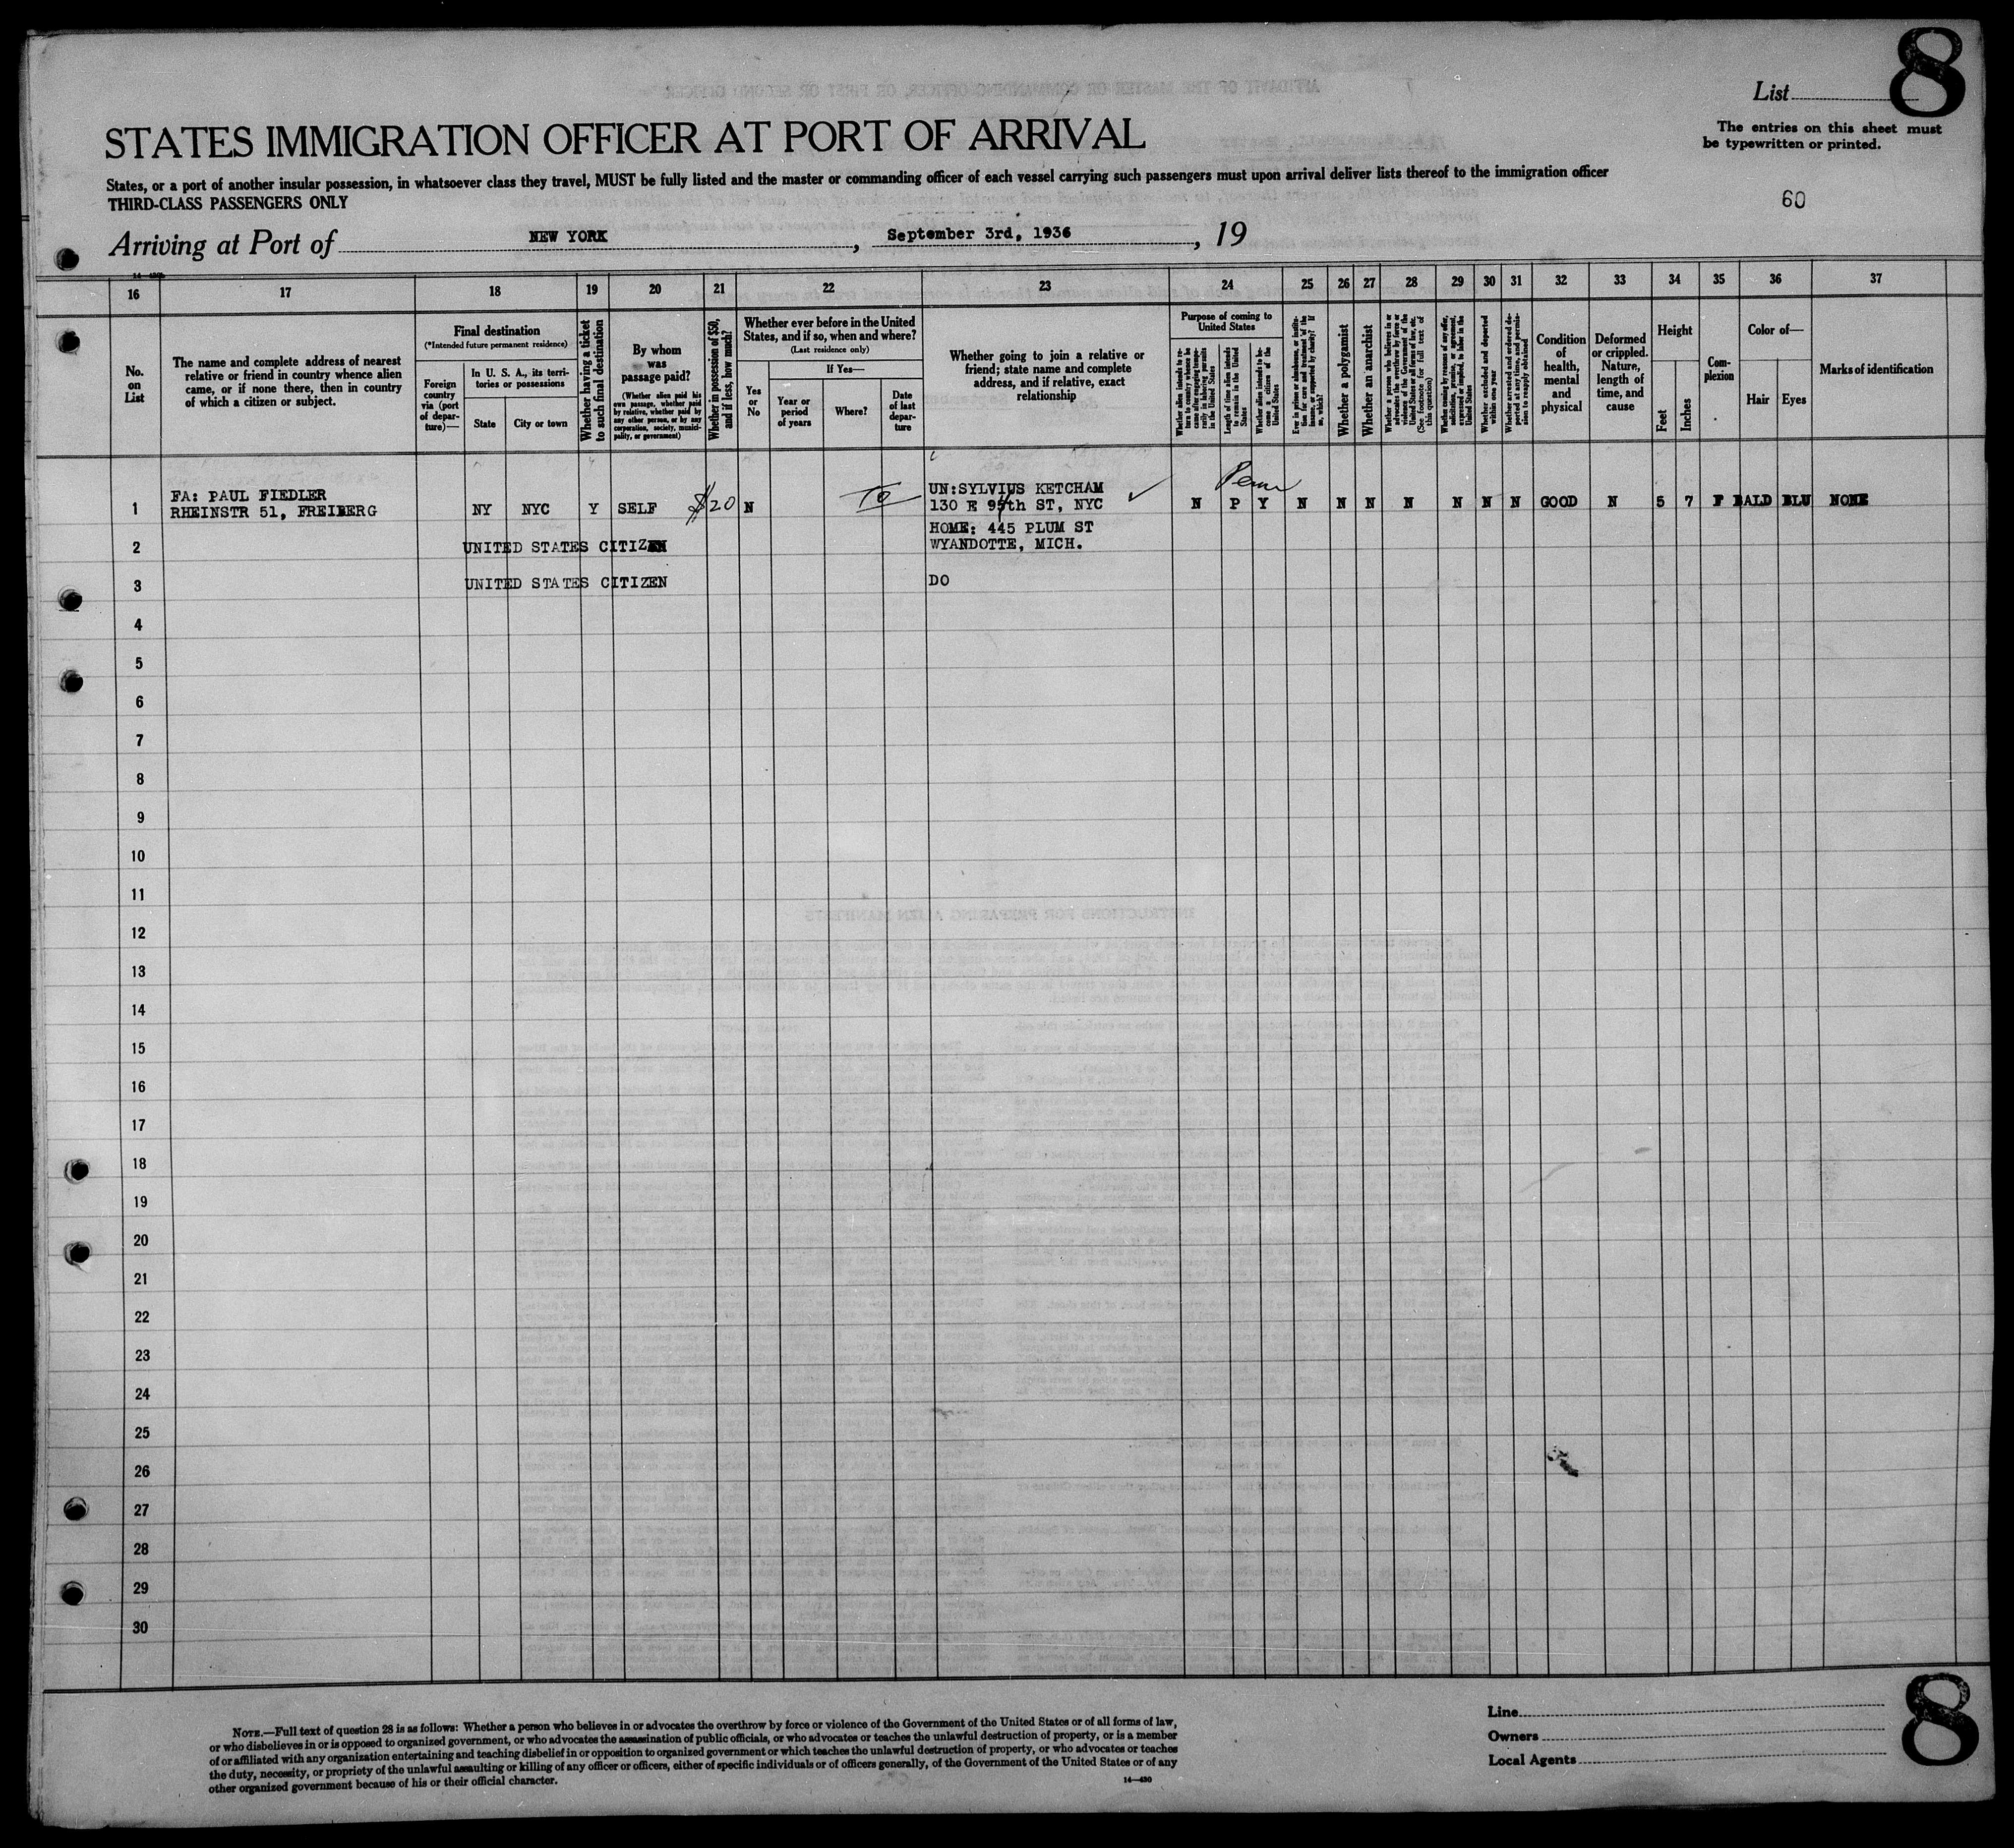 List 8
The entries on this sheet must
be typewritten or printed.
STATES IMMIGRATION OFFICER AT PORT OF ARRIVAL
States, or a port of another insular possession, in whatsoever class they travel, MUST be fully listed and the master or commanding officer of each vessel carrying such passengers must upon arrival deliver lists thereof to the immigration officer
THIRD-CLASS PASSENGERS ONLY
60
Arriving at Port of NEW YORK, September 3rd, 1936, 19
16 17 18 19 20 21 22 23 24 25 26 27 28 29 30 31 32 33 34 35 36 37
No.
on
List
The name and complete address of nearest
relative or friend in country whence alien
came, or if none there, then in country
of which a citizen or subject.
Final destination
(*Intended future permanent residence)
Foreign
country
via (port
of depar-
ture)—
In U. S. A., its terri-
tories or possessions
State
City or town
Whether having a ticket
to such final destination
By whom
was
passage paid?
(Whether alien paid his
own passage, whether paid
by relative, whether paid by
any other person, or by any
corporation, society, munici-
pality, or government)
Whether in possession of $50,
and if less, how much?
Whether ever before in the United
States, and if so, when and where?
(Last residence only)
Yes
or
No
If Yes—
Year or
period
of years
Where?
Date
of last
depar-
ture
Whether going to join a relative or
friend; state name and complete
address, and if relative, exact
relationship
Purpose of coming to
United States
Whether alien intends to re-
turn to country whence he
came after engaging tempo-
rarily in laboring pursuits
in the United States
Length of time alien intends
to remain in the United
States
Whether alien intends to be-
come a citizen of the
United States
Ever in prison or almshouse, or institu-
tion for care and treatment of the
insane, or supported by charity? If
so, which?
Whether a polygamist
Whether an anarchist
Whether a person who believes in or
advocates the overthrow by force or
violence of the Government of the
United States or all forms of law, etc.
(See footnote for full text of
this question)
Whether coming by reason of any offer,
solicitation, promise, or agreement,
expressed or implied, to labor in the
United States
Whether excluded and deported
within one year
Whether arrested and ordered de-
ported at any time, and permis-
sion to reapply obtained
Condition
of
health,
mental
and
physical
Deformed
or crippled.
Nature,
length of
time, and
cause
Height
Feet
Inches
Com-
plexion
Color of—
Hair
Eyes
Marks of identification
1 FA: PAUL FIEDLER
RHEINSTR 51, FREIBERG
NY NYC Y SELF $20 N
UN:SYLVIUS KETCHAM
130 E 95th ST, NYC
Perm
N P Y N N N N N N N GOOD N 5 7 F BALD BLU NONE
2 UNITED STATES CITIZEN
HOME: 445 PLUM ST
WYANDOTTE, MICH.
3 UNITED STATES CITIZEN DO
4
5
6
7
8
9
10
11
12
13
14
15
16
17
18
19
20
21
22
23
24
25
26
27
28
29
30
NOTE.—Full text of question 28 is as follows: Whether a person who believes in or advocates the overthrow by force or violence of the Government of the United States or of all forms of law,
or who disbelieves in or is opposed to organized government, or who advocates the assassination of public officials, or who advocates or teaches the unlawful destruction of property, or is a member
of or affiliated with any organization entertaining and teaching disbelief in or opposition to organized government or which teaches the unlawful destruction of property, or who advocates or teaches
the duty, necessity, or propriety of the unlawful assaulting or killing of any officer or officers, either of specific individuals or of officers generally, of the Government of the United States or of any
other organized government because of his or their official character.
14—430
Line
Owners
Local Agents
8